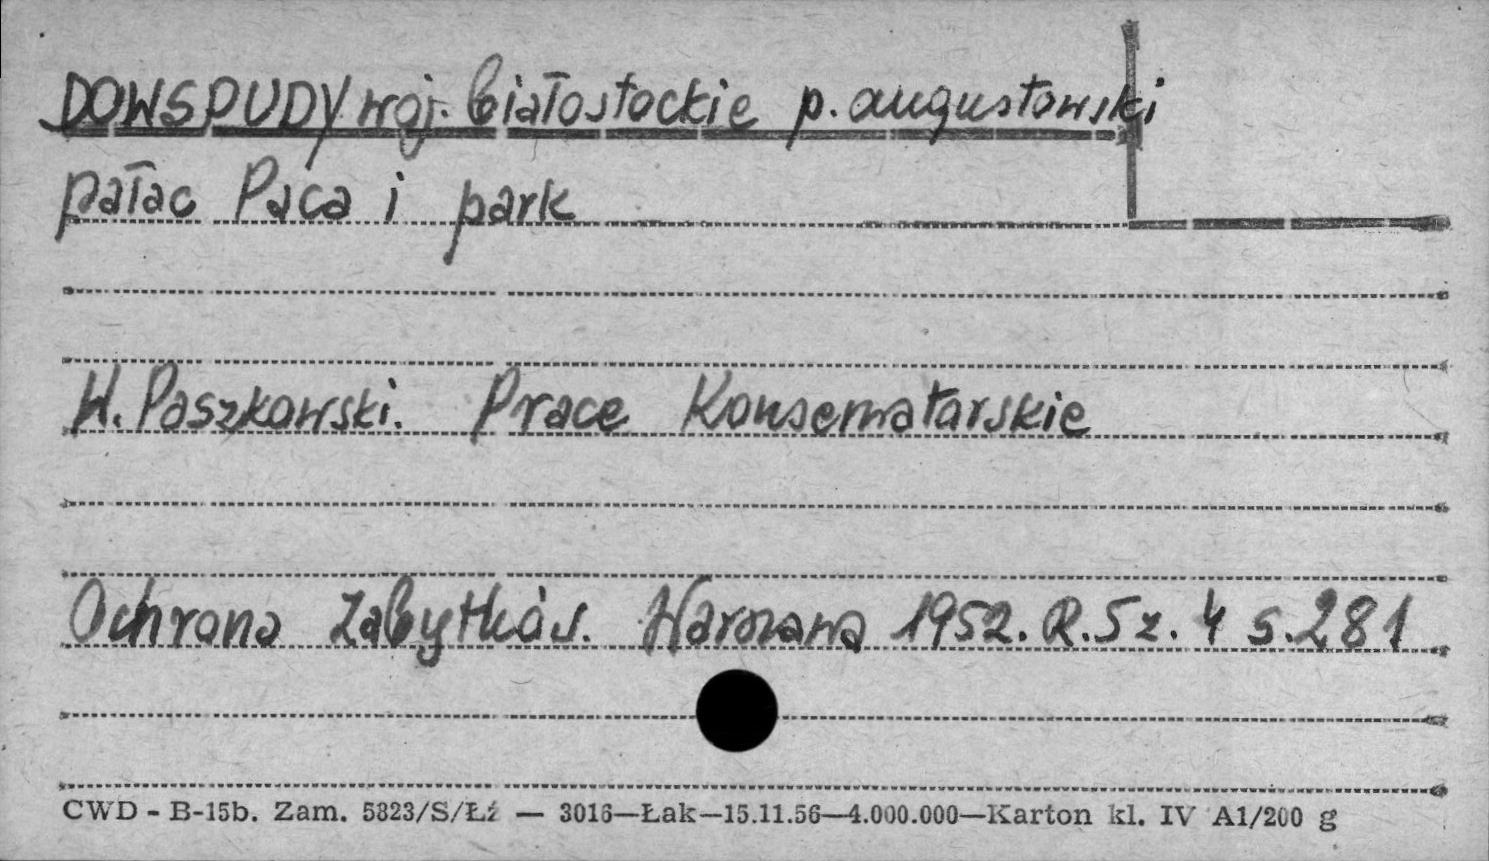 DOWSPUDY woj. białostockie p. augustowski
pałac Paca i park
W. Paszkowski. Prace Konserwatorskie
Ochrona Zabytków. Warszawa 1952. R. 5 z. 4 s. 281
CWD - B-15b. Zam. 5823/S/Łź — 3016—Łak—15.11.56—4.000.000—Karton kl. IV A1/200 g